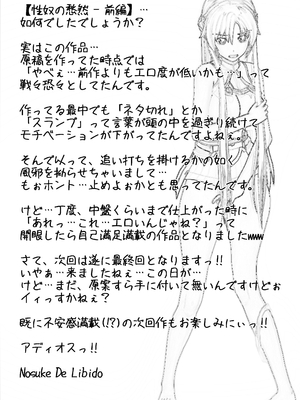 【性奴の愁然 - 前編】…
如何でしたでしょうか？
実はこの作品…
原稿を作ってた時点では
「やべぇ…前作よりもエロ度が低いかも…」って
戦々恐々としてたんです。
作ってる最中でも「ネタ切れ」とか
「スランプ」って言葉が頭の中を過ぎり続けて
モチベーションが下がってたんですよねぇ。
そんで以って、追い打ちを掛けるかの如く
風邪を拗らせちゃいまして…
もぉホント…止めよぉかとも思ってたんです。
けど…丁度、中盤くらいまで仕上がった時に
「あれっ…これ…エロいんじゃね？」って
開眼したら自己満足満載の作品となりましたwww
さて、次回は遂に最終回となりますっ!!
いやぁ…来ましたねぇ…この日が…
けど…まだ、原案すら手に付いて無いんですけどぉ
イィっすかねぇ？
既に不安感満載(!?)の次回作もお楽しみにぃっ!!
アディオスっ!!
Nosuke De Libido